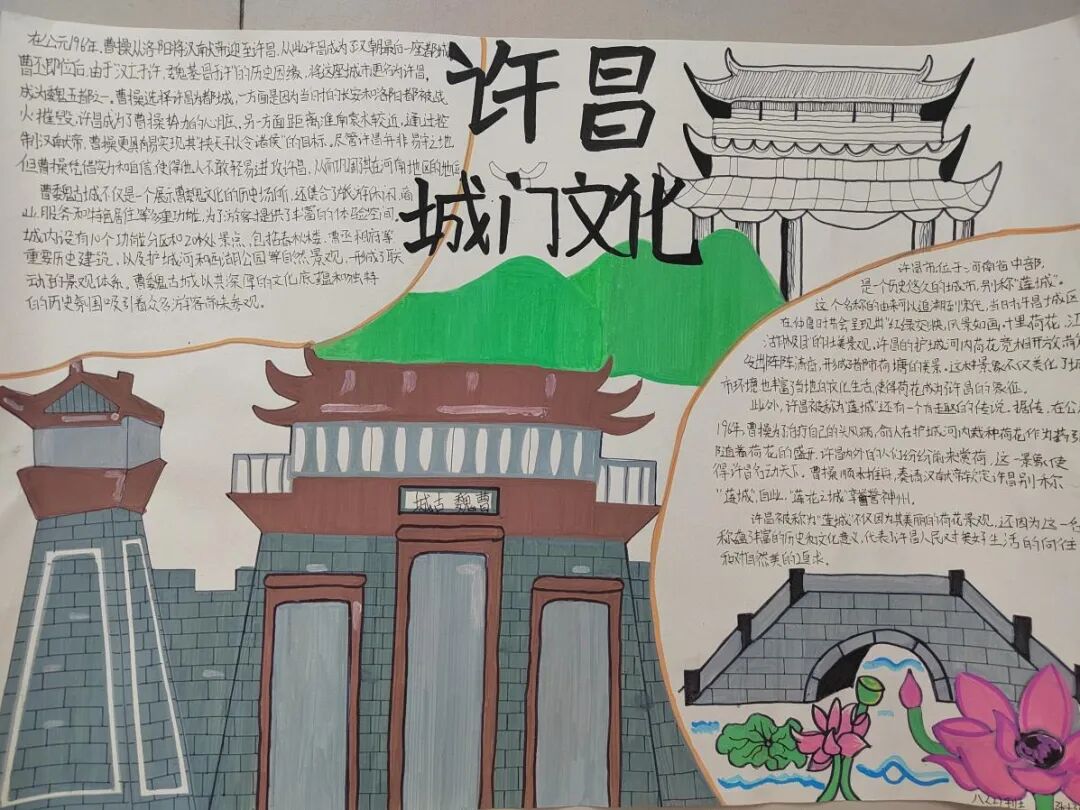 许昌
城门文化
在公元196年,曹操从洛阳将汉献帝迎至许昌,从此许昌成为了汉朝最后一座都城
曹丕即位后,由于"汉亡于许,魏基昌于许"的历史因缘,将这座城市更名为许昌,
成为魏五都之一。曹操选择许昌为都城,一方面是因为当时的长安和洛阳都被战
火摧毁,许昌成为了曹操势力的心脏、另一方面距离淮南袁术较近,通过控
制汉献帝,曹操更容易实现其"挟天子以令诸侯"的目标。尽管许昌并非易守之地
但曹操凭借实力和自信,使得他人不敢轻易进攻许昌,从而巩固其在河南地区的地位
曹魏古城不仅是一个展示曹魏文化的历史场所,还集合了旅游休闲、商
业、服务和特色居住等多重功能,为了游客提供了丰富的体验空间。
城内设有10个功能分区和20秋处景点,包括春秋楼、曹丞相府等
重要历史建筑,以及护城河和西湖公园等自然景观,形成了联
动的景观体系。曹魏古城以其深厚的文化底蕴和独特
的历史氛围吸引着众多游客前来参观。
许昌市位于河南省中部,
是一个历史悠久的城市,别称"莲城"。
这个名称的由来可以追溯到宋代,当时许昌城区
在仲夏时节会呈现出"红绿交映,风景如画,十里荷花,江
的壮美景观,许昌的护城河内荷花竞相开放,
发出阵阵清香,形成了独特荷塘的美景。这种景象不仅美化了城
市环境也丰富了当地的文化生活,使得荷花成为许昌的象征。
此外,许昌被称为"莲城"还有一个有趣的传说。据传,在公元
196年,曹操为了治疗自己的头风病,命人在护城河内栽种荷花作为药引
随着荷花的盛开,许昌内外的人们纷纷前来赏荷,这一景象使
得许昌名动天下。曹操顺水推舟,奏请汉献帝钦定许昌别称
"莲城",自此,"莲花之城"享誉神州。
许昌被称为"莲城"不仅因为其美丽的荷花景观,还因为这一名
称蕴含丰富的历史和文化意义,代表了许昌人民对美好生活的向往
和对自然美的追求。
城古 魏曹